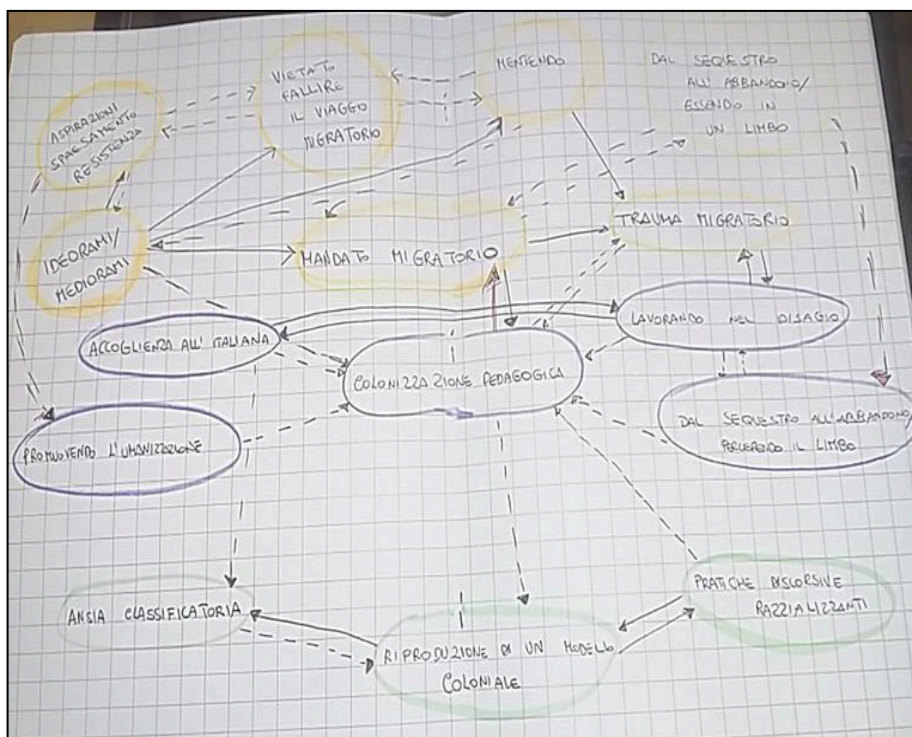 ASPIRAZIONI
SPAESAMENTO
RESISTENZA
VIETATO
FALLIRE
IL VIAGGIO
MIGRATORIO
MENTENDO
DAL SEQUESTRO
ALL'ABBANDONO/
ESSENDO IN
UN LIMBO
IDEORAMI/
MEDIORAMI
MANDATO MIGRATORIO
TRAUMA MIGRATORIO
ACCOGLIENZA ALL'ITALIANA
COLONIZZAZIONE PEDAGOGICA
LAVORANDO NEL DISAGIO
PROMUOVENDO L'UMANIZZAZIONE
DAL SEQUESTRO ALL'ABBANDONO/
IL LIMBO
ANSIA CLASSIFICATORIA
RIPRODUZIONE DI UN MODELLO
COLONIALE
PRATICHE DISCORSIVE
RAZZIALIZZANTI